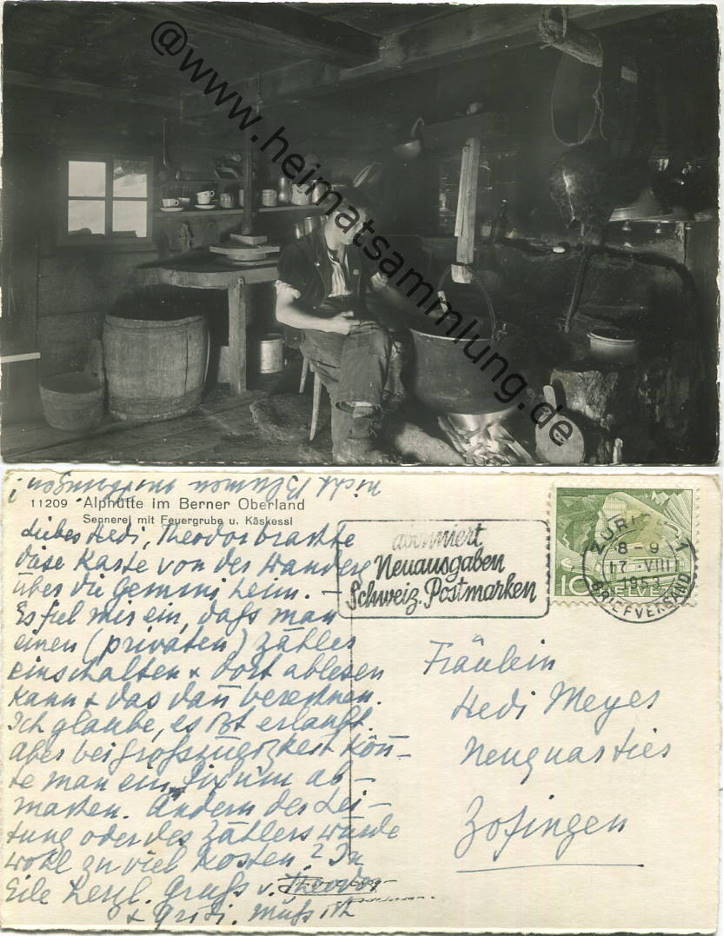 @www.heimatsammlung.de
nicht Blumen
11209 Alphütte im Berner Oberland
Sennerei mit Feuergrube u. Käskessl
Liebes Hedi, Theodor brachte
diese Karte von der Wandere
über die Gemmi heim. –
Es fiel mir ein, dass man
einen (privaten) Zähler
einschalten + dort ablesen
kann + das dan berechnen.
Ich glaube, es ist erlaubt
aber bei Grosszügigkeit kön-
te man ein Fixum ab-
machen. Ändern der Lei-
tung oder des Zählers würde
wohl zu viel kosten? In
Eile herzl. Gruss v. Theodor
+ Gridi. Muss ich
abonniert
Neuausgaben
Schweiz. Postmarken
ZÜRICH 1
8-9
17. VIII
1953
BRIEFVERSAND
10 HELVETIA
Fräulein
Hedi Meyer
Neuquartier
Zofingen